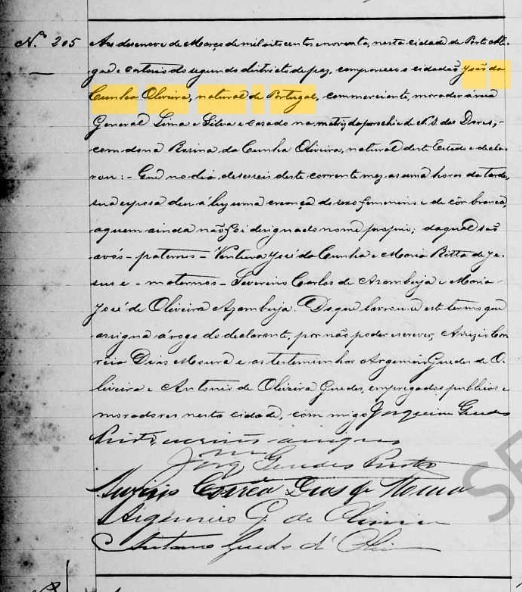 N.º 205
Aos desenove de Março de mil oito centos e noventa, nesta cidade de Porto Ale-
gre e cartorio do segundo districto de paz, compareceu o cidadão José da
Cunha Oliveira, natural de Portugal, commerciante, morador á rua
General Lima e Silva e casado na matriz da parochia de N. S. das Dores,
com dona Rasina da Cunha Oliveira, natural deste Estado e decla-
rou: - Que no dia deseseis deste corrente mez, as uma hora da tarde,
sua esposa deu á luz uma creança do sexo femenino e de côr branca,
a quem ainda não foi designado nome proprio; da qual são
avós - paternos - Ventura José da Cunha e Maria Ritta de Je-
sus e - maternos - Severino Carlos de Azambuja e Maria
José de Oliveira Azambuja. Do que lavrou-se este termo que
assigna á rogo do declarante, por não poder escrever, Cor-
reia Dias Moura e as testemunhas Argemiro Guedes de O-
liveira e Antonio de Oliveira Guedes, empregados publicos e
moradores nesta cidade, commigo Joaquim Guedes
escrivão
Guedes
Corrêa Dias de Moura
Argemiro G. de Oliveira
Antonio Guedes d'
SE